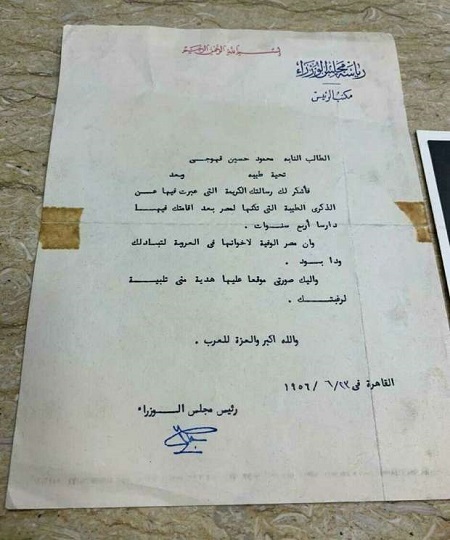 بسم الله الرحمن الرحيم
رياسة مجلس الوزراء
مكتب الرئيس
الطالب النابه محمود حسين قهوجى
تحية طيبه وبعد
فأشكر لك رسالتك الكريمة التى عبرت فيها عن
الذكرى الطيبة التى تكنها لمصر بعد اقامتك فيها
دارسا أربع سنوات .
وان مصر الوفية لاخوانها فى العروبة لتبادلك
ودا بود .
واليك صورتى موقعا عليها هدية منى تلبية
لرغبتك .
والله اكبر والعزة للعرب .
القاهرة فى ٢٣/٦/١٩٥٦
رئيس مجلس الوزراء